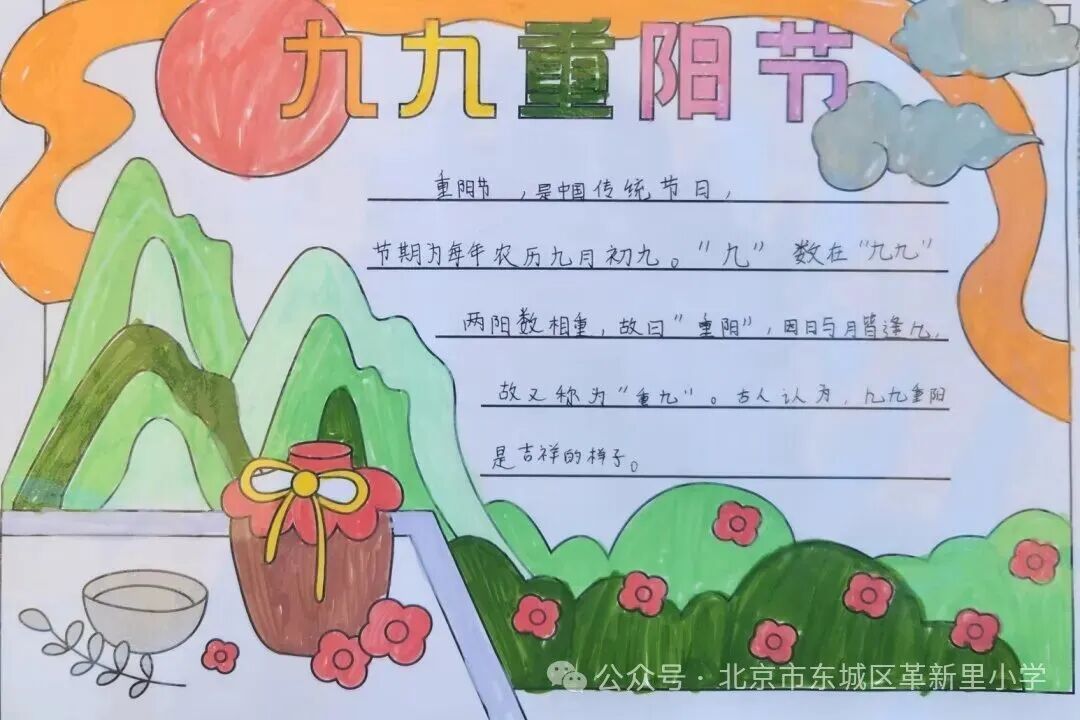 九九重阳节
重阳节，是中国传统节日，
节期为每年农历九月初九。"九"数在"九九"
两阳数相重，故曰"重阳"，因日与月皆逢九，
故又称为"重九"。古人认为，九九重阳
是吉祥的样子。
公众号·北京市东城区革新里小学